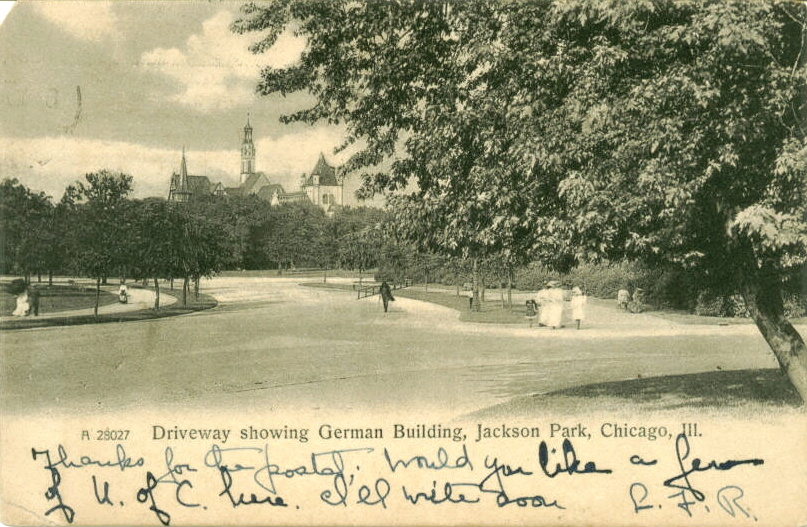 A 28027 Driveway showing German Building, Jackson Park, Chicago, Ill.
Thanks for the postal. Would you like a few
of U. of C. here. I'll write soon L. F. R.